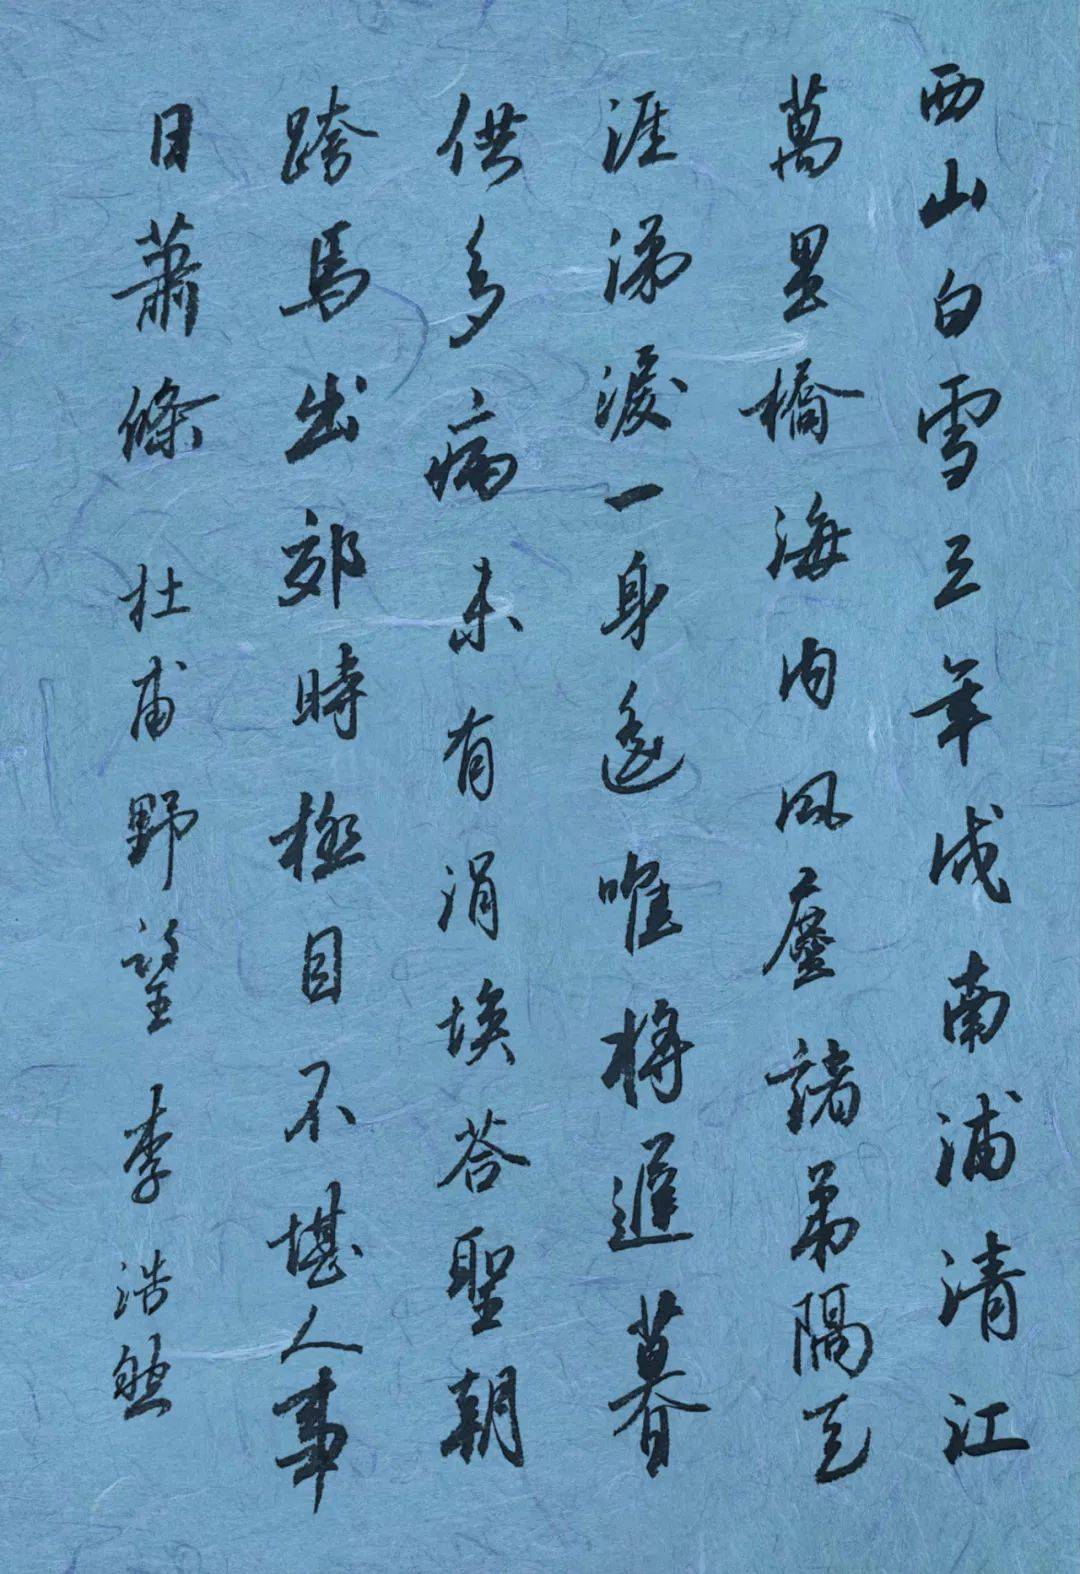 西山白雪三年戍南浦清江
萬里橋海内風塵諸弟隔天
涯涕淚一身遥唯將遲暮
供多病未有涓埃答聖朝
跨馬出郊時極目不堪人事
日蕭條 杜甫野望 李浩然